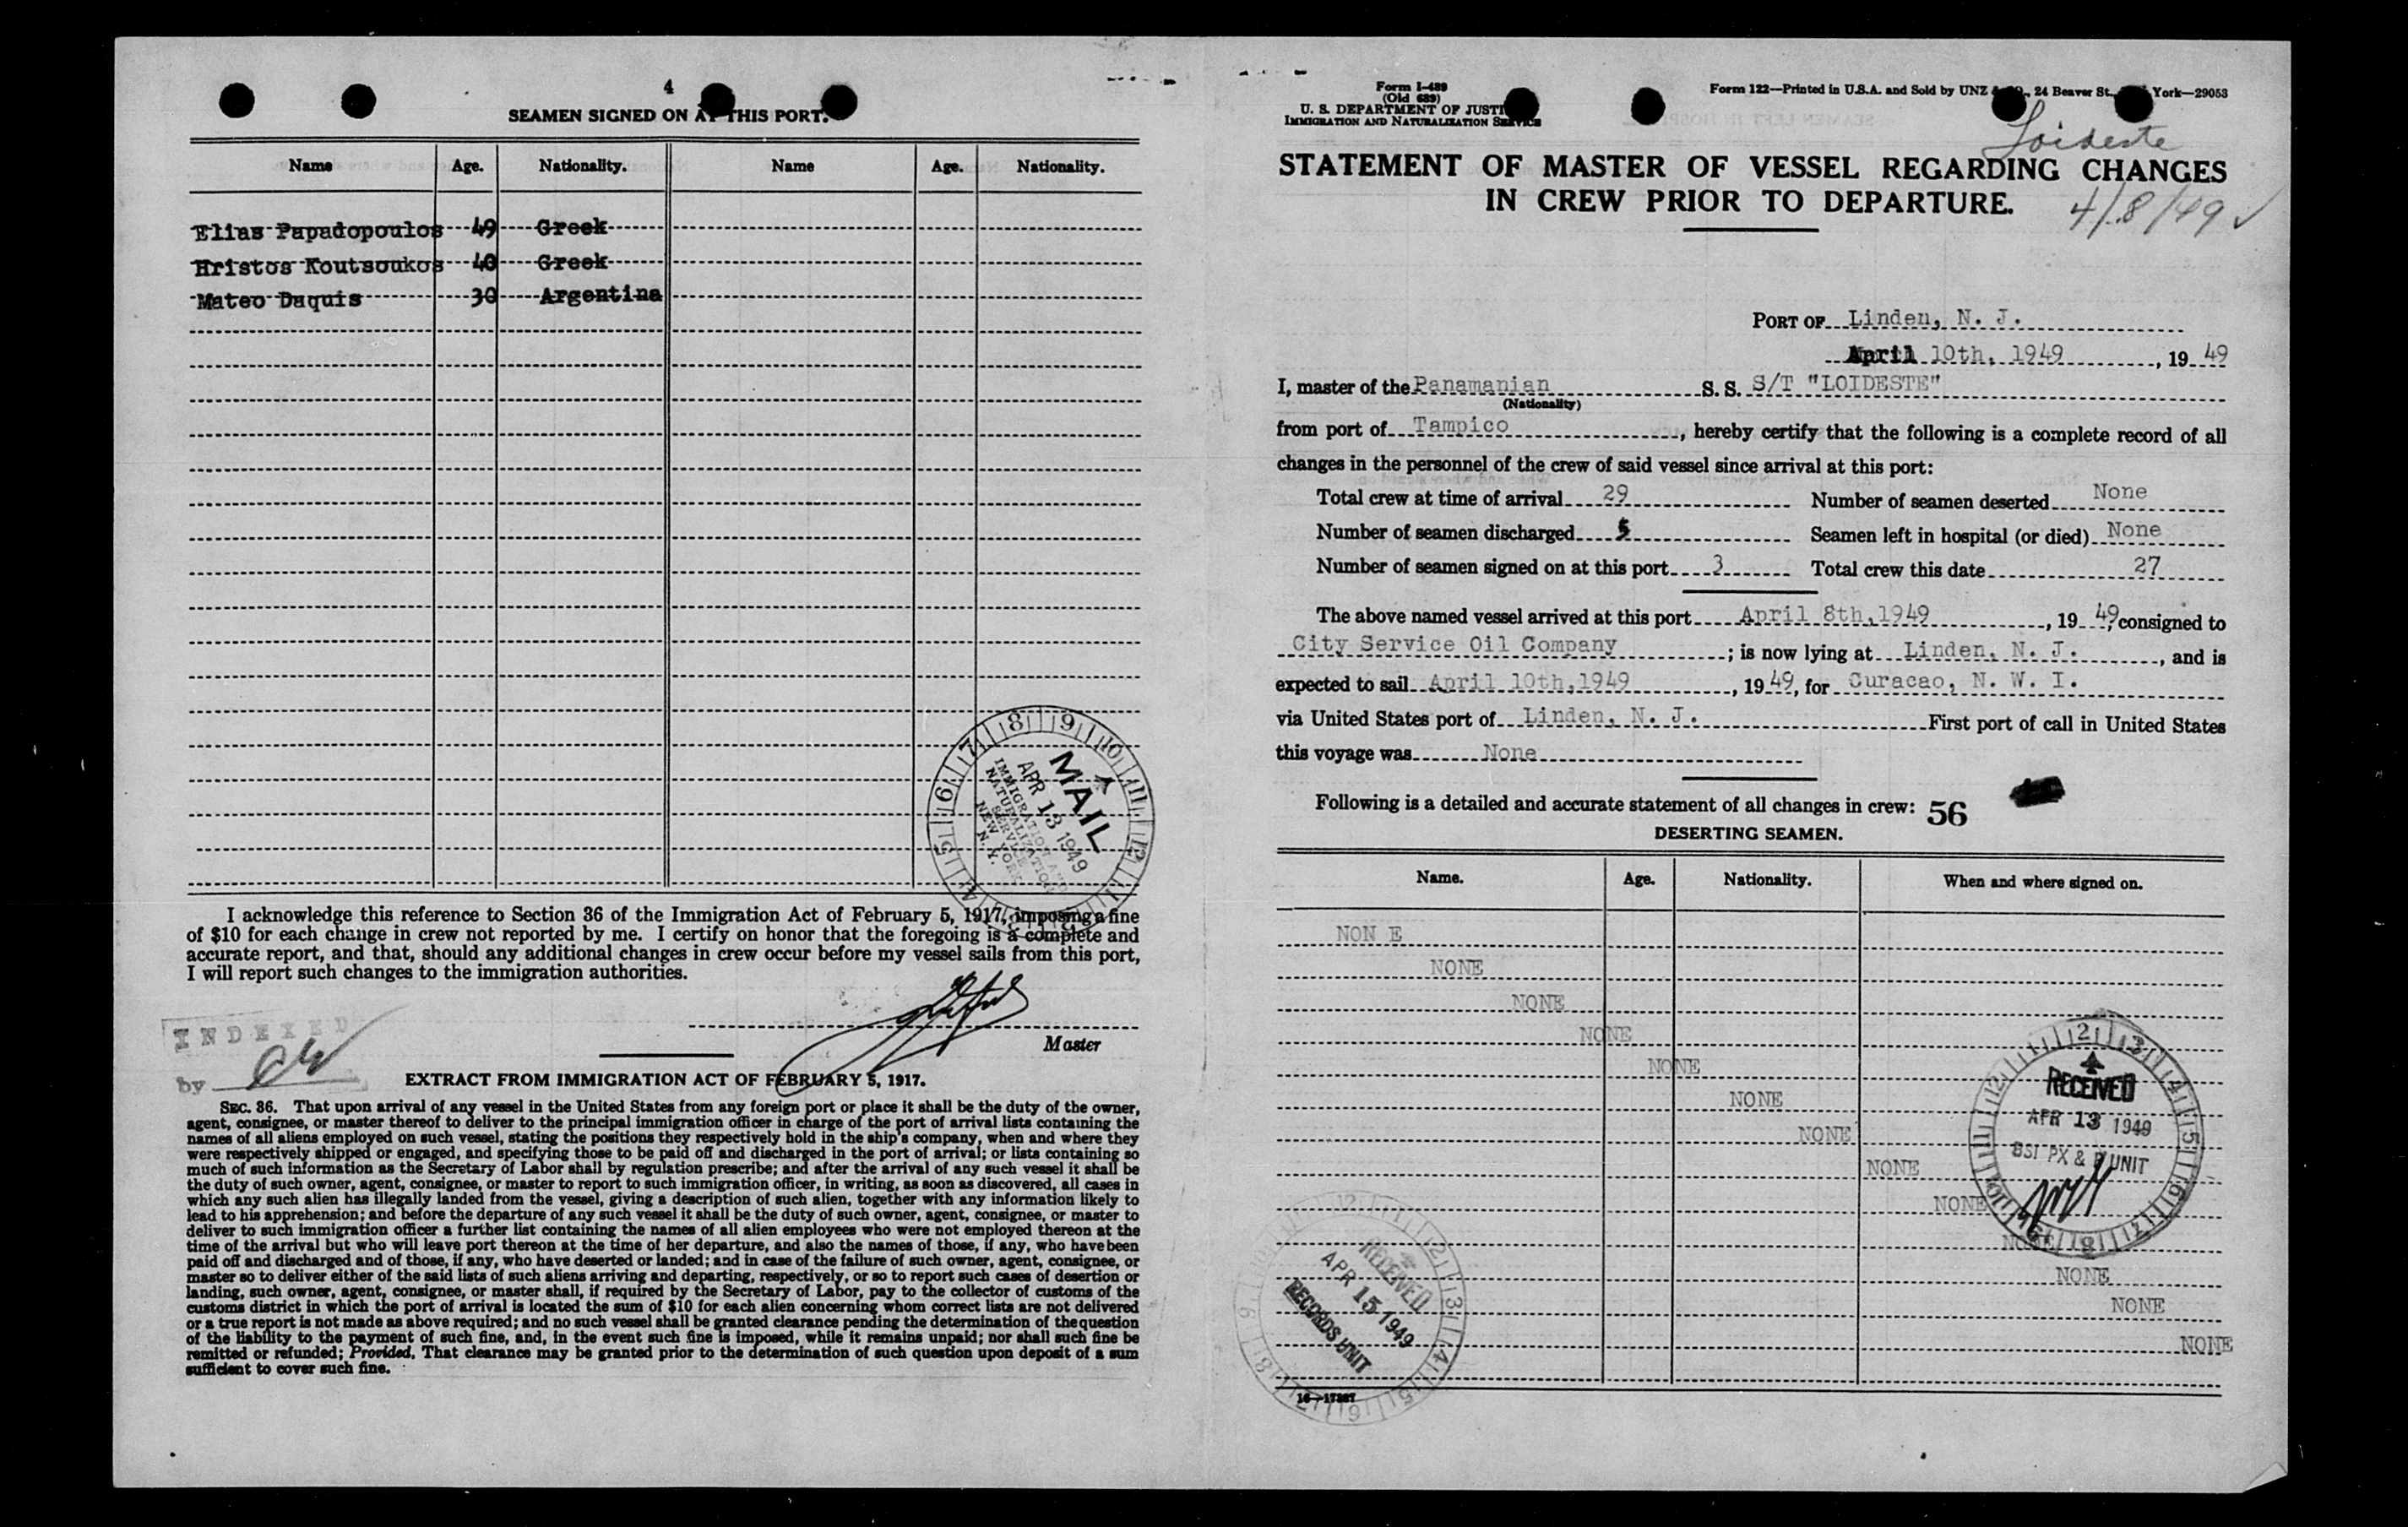 4
SEAMEN SIGNED ON AT THIS PORT.
Name Age. Nationality. Name Age. Nationality.
Elias Papadopoulos 49 Greek
Hristos Koutsoukos 40 Greek
Mateo Daquis 30 Argentina
MAIL
APR 13 1949
IMMIGRATION AND
NATURALIZATION
SERVICE
NEW YORK
N. Y.
I acknowledge this reference to Section 36 of the Immigration Act of February 5, 1917, imposing a fine
of $10 for each change in crew not reported by me. I certify on honor that the foregoing is a complete and
accurate report, and that, should any additional changes in crew occur before my vessel sails from this port,
I will report such changes to the immigration authorities.
Master
INDEXED
by
EXTRACT FROM IMMIGRATION ACT OF FEBRUARY 5, 1917.
SEC. 36. That upon arrival of any vessel in the United States from any foreign port or place it shall be the duty of the owner,
agent, consignee, or master thereof to deliver to the principal immigration officer in charge of the port of arrival lists containing the
names of all aliens employed on such vessel, stating the positions they respectively hold in the ship's company, when and where they
were respectively shipped or engaged, and specifying those to be paid off and discharged in the port of arrival; or lists containing so
much of such information as the Secretary of Labor shall by regulation prescribe; and after the arrival of any such vessel it shall be
the duty of such owner, agent, consignee, or master to report to such immigration officer, in writing, as soon as discovered, all cases in
which any such alien has illegally landed from the vessel, giving a description of such alien, together with any information likely to
lead to his apprehension; and before the departure of any such vessel it shall be the duty of such owner, agent, consignee, or master to
deliver to such immigration officer a further list containing the names of all alien employees who were not employed thereon at the
time of the arrival but who will leave port thereon at the time of her departure, and also the names of those, if any, who have been
paid off and discharged and of those, if any, who have deserted or landed; and in case of the failure of such owner, agent, consignee, or
master so to deliver either of the said lists of such aliens arriving and departing, respectively, or so to report such cases of desertion or
landing, such owner, agent, consignee, or master shall, if required by the Secretary of Labor, pay to the collector of customs of the
customs district in which the port of arrival is located the sum of $10 for each alien concerning whom correct lists are not delivered
or a true report is not made as above required; and no such vessel shall be granted clearance pending the determination of the question
of the liability to the payment of such fine, and, in the event such fine is imposed, while it remains unpaid; nor shall such fine be
remitted or refunded; Provided, That clearance may be granted prior to the determination of such question upon deposit of a sum
sufficient to cover such fine.
Form I-489
(Old 689)
U. S. DEPARTMENT OF JUSTI
IMMIGRATION AND NATURALIZATION SERVICE
Form 122—Printed in U.S.A. and Sold by UNZ , 24 Beaver St., York—29053
Loideste
STATEMENT OF MASTER OF VESSEL REGARDING CHANGES
IN CREW PRIOR TO DEPARTURE.
4/8/49 ✓
PORT OF Linden, N. J.
April 10th, 1949, 19 49
I, master of the Panamanian S. S. S/T "LOIDESTE"
(Nationality)
from port of Tampico, hereby certify that the following is a complete record of all
changes in the personnel of the crew of said vessel since arrival at this port:
Total crew at time of arrival 29 Number of seamen deserted None
Number of seamen discharged 5 Seamen left in hospital (or died) None
Number of seamen signed on at this port 3 Total crew this date 27
The above named vessel arrived at this port April 8th,1949, 19 49, consigned to
City Service Oil Company; is now lying at Linden, N. J., and is
expected to sail April 10th,1949, 19 49, for Curacao, N. W. I.
via United States port of Linden, N. J. First port of call in United States
this voyage was None
Following is a detailed and accurate statement of all changes in crew: 56
DESERTING SEAMEN.
Name. Age. Nationality. When and where signed on.
NON E
NONE
NONE
NONE
NONE
NONE
NONE
NONE
NONE
NONE
NONE
NONE
NONE
RECEIVED
APR 13 1949
BSI PX & UNIT
RECEIVED
APR 15 1949
RECORDS UNIT